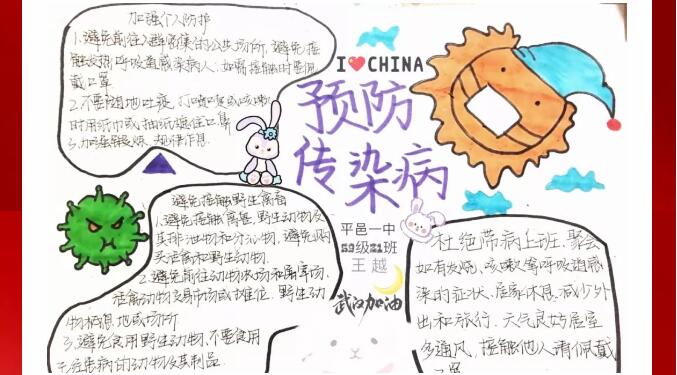 加强个人防护
1.避免前往人群密集的公共场所,避免接
触发热呼吸道感染病人,如需接触时要佩
戴口罩
2.不要随地吐痰,打喷嚏或咳嗽
时用纸巾或抽纸遮住口鼻
3.加强锻炼、规律作息
I CHINA
预防
传染病
平邑一中
59级21班
王越
武汉加油
避免接触野生禽畜
1.避免接触禽畜、野生动物及
其排泄物和分泌物,避免购
买活禽和野生动物.
2.避免前往动物农场和屠宰场、
活禽动物交易市场或摊位、野生动
物栖息地或场所
3.避免食用野生动物,不要食用
病的动物及其制品
杜绝带病上班、聚会
如有发烧、咳嗽等呼吸道感
染的症状、居家休息、减少外
出和旅行、天气良好居室
多通风,接触他人请佩戴